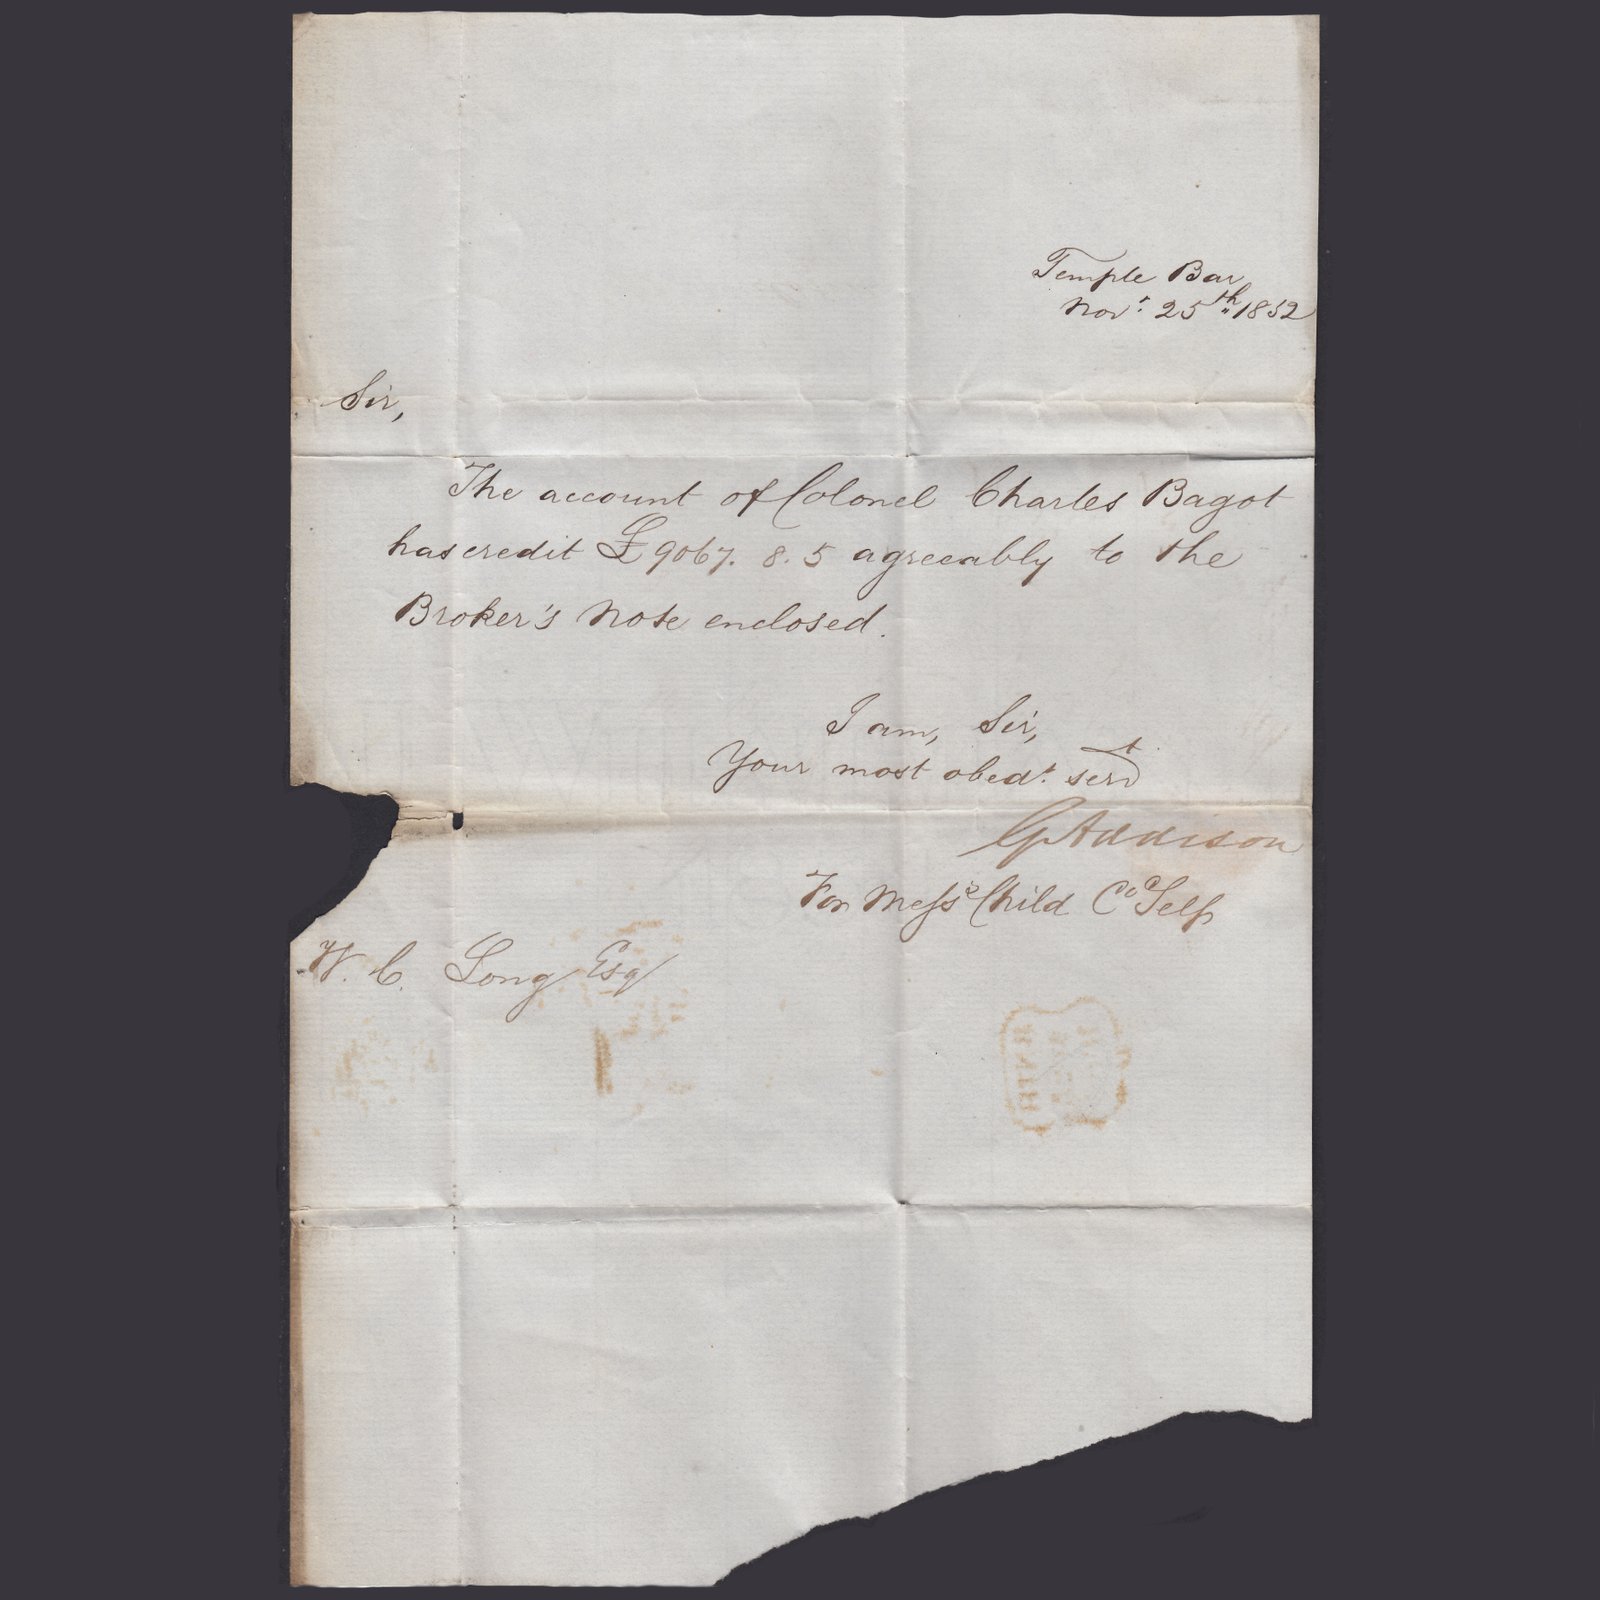 Temple Bar
Novr. 25th 1852
Sir,
The account of Colonel Charles Bagot
has credit £9067. 8. 5 agreeably to the
Broker's Note enclosed.
I am, Sir,
Your most obedt. servt
G Addison
For Messrs Child Co & Self
W. C. Long Esq